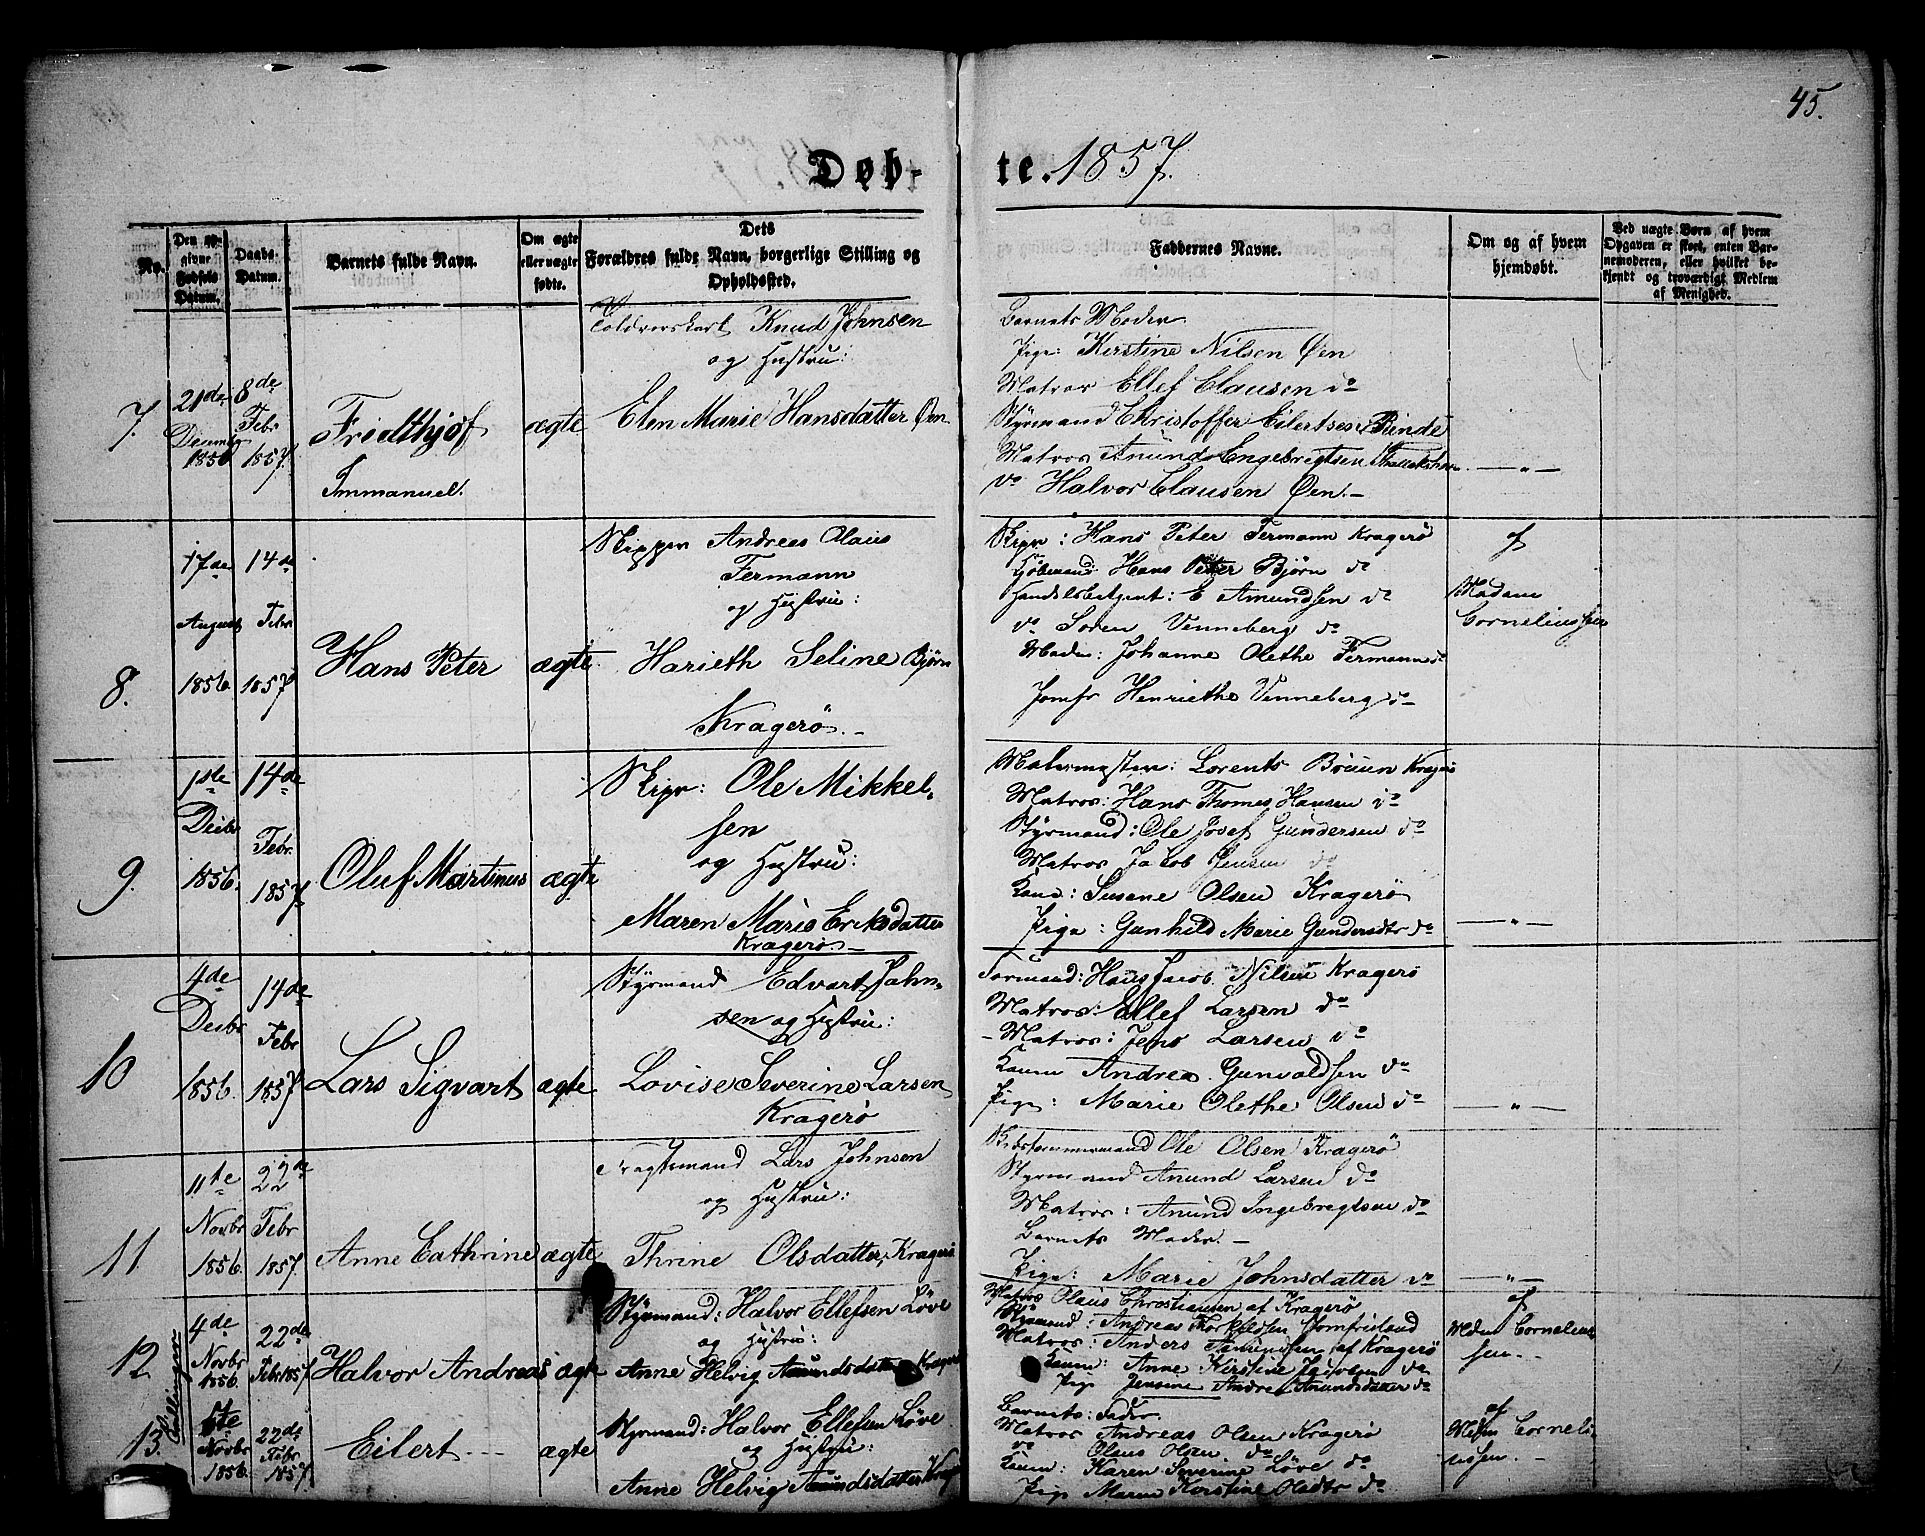 45.
Døb- te. 1857.
No.
Den op-
givne
Fødsels
Datum.
Daabs-
Datum.
Barnets fulde Navn.
Om ægte
eller uægte
fødte.
Dets
Forældres fulde Navn, borgerlige Stilling og
Opholdssted.
Faddernes Navne.
Om og af hvem
hjemdøbt.
Ved uægte Børn af hvem
Opgaven er skeet, enten Bar-
nemoderen, eller hvilket be-
kjendt og troværdigt Medlem
af Menighed.
7.
21de
1856
8de
Febr
1857.
Fridthjof
Immanuel.
ægte
Knud Johnsen
og Hustru:
Elen Marie Hansdatter Øen
Barnets Moder
Pige: Kirstine Nilsen Øen
Matros Ellef Clausen do
Styrmand Christoffer Eilertsen Rinde
Matros Anund Engebregtsen
do Halvor Clausen Øen.-
— " —
8.
17de
August
1856.
14de
Febr
1857
Hans Peter
ægte
Skipper Andreas Olaus
Fermann
og Hustru:
Harieth Seline Bjørn
Kragerø.-
Skipr: Hans Peter Fermann Kragerø
Kjøbmand Hans Peter Bjørn do
Handelsbetjent: E Amundsen do
do Soren Venneberg do
Madm: Johanne Olethe Fermann do
Jomfr Henriethe Venneberg do
af
Madam
Corneliussen
9.
1ste
Decbr
1856.
14de
Febr.
1857
Oluf Martinus
ægte
Skipr: Ole Mikkel-
sen
og Hustru:
Maren Marie Eriksdatter
Kragerø-
Malermester: Lorents Kragerø
Matros: Hans Thomes Hansen do
Styrmand: Ole Josef Gundersen do
Matros Jakob Jensen do
Kone: Susane Olsen Kragerø
Pige: Gunhild Marie Gundersdtr do
— " —
10
4de
Decbr
1856.
14de
Febr
1857
Lars Sigvart
ægte
Styrmand Edvart John-
sen og Hustru:
Lovise Severine Larsen
Kragerø
Formand: Hans Jacob Nilsen Kragerø
Matros: Ellef Larsen do
- Matros: Jens Larsen do
Konen Andrea Gunvaldsen do
Pige: Marie Olethe Olsen do
— " —
11
11te
Novbr
1856.
22de
Febr
1857.
Anne Cathrine
ægte
Lars Johnsen
og Hustru:
Thrine Olsdatter, Kragerø
Ole Olsen Kragerø
Styrmand Anund Larsen do
Matros: Anund Ingebregtsen do
Barnets Moder. -
Pige: Marie Johnsdatter do
— " —
12
4de
Novbr
1856.
22de
Febr 1857
Halvor Andreas
ægte
Styrmand: Halvor Ellefsen Løve
og Hustru:
Anne Helvig Amundsdatter Kragerø
Matros Olaus Christiansen af Kragerø
Styrmand: Andreas Jomfruland
Matros: Anders af Kragerø
Konen: Anne Kirstine Jacobsen do
Pige Jensine Andrea Amundsdatter do
af
Mdm Cornelius-
sen.-
Tvillinger
13.
Novbr
1856.
22de
Febr
1857.
Eilert.--
ægte
Styrmand: Halvor Ellefsen Løve
og Hustru:
Anne Helvig Amundsdatter
Barnets: Fader.
Matros Andreas Olsen Kragerø
do Olaus Olsen do
Konen: Karen Severine Løve do
Pige Maren Kirstine Olsdtr do
af
Mdm Corneli-
ussen. -